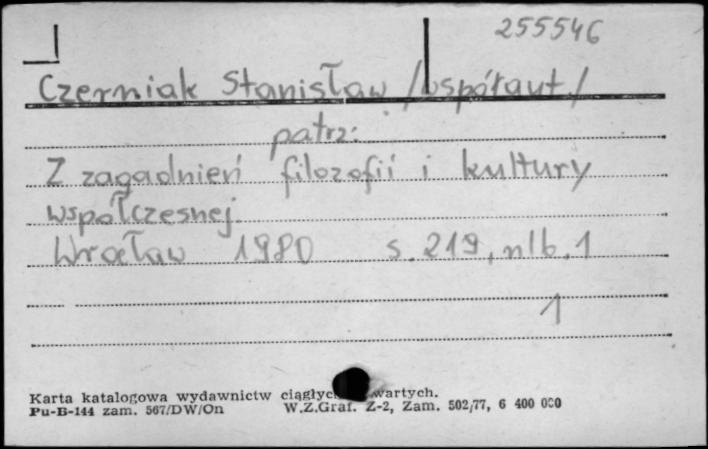 255546
Czerniak Stanisław /współaut./
patrz:
Z zagadnień filozofii i kultury
współczesnej.
Wrocław 1980 s. 219, nlb. 1
1
Karta katalogowa wydawnictw ciągłych
Pu-B-144 zam. 567/DW/On W.Z.Graf. Z-2, Zam. 502/77, 6 400 000